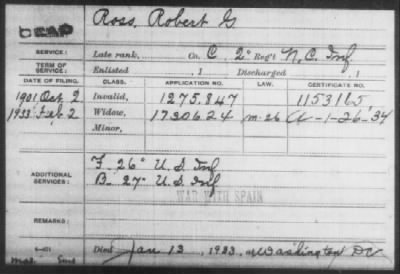 DEAD
Ross, Robert G
SERVICE: Late rank, Co. C, 2" Reg't N.C. Inf
TERM OF SERVICE: Enlisted , 1 Discharged , 1
DATE OF FILING. CLASS. APPLICATION NO. LAW. CERTIFICATE NO.
1901 Oct 2 Invalid, 1275.847 1153165
1933 Feb 2 Widow, 1730624 m-26 A-1-26-34
Minor,
ADDITIONAL SERVICES:
F. 26" U.S Inf
B. 27" U.S Inf
WAR WITH SPAIN
REMARKS:
Died Jan 13, 1933, at Washington DC